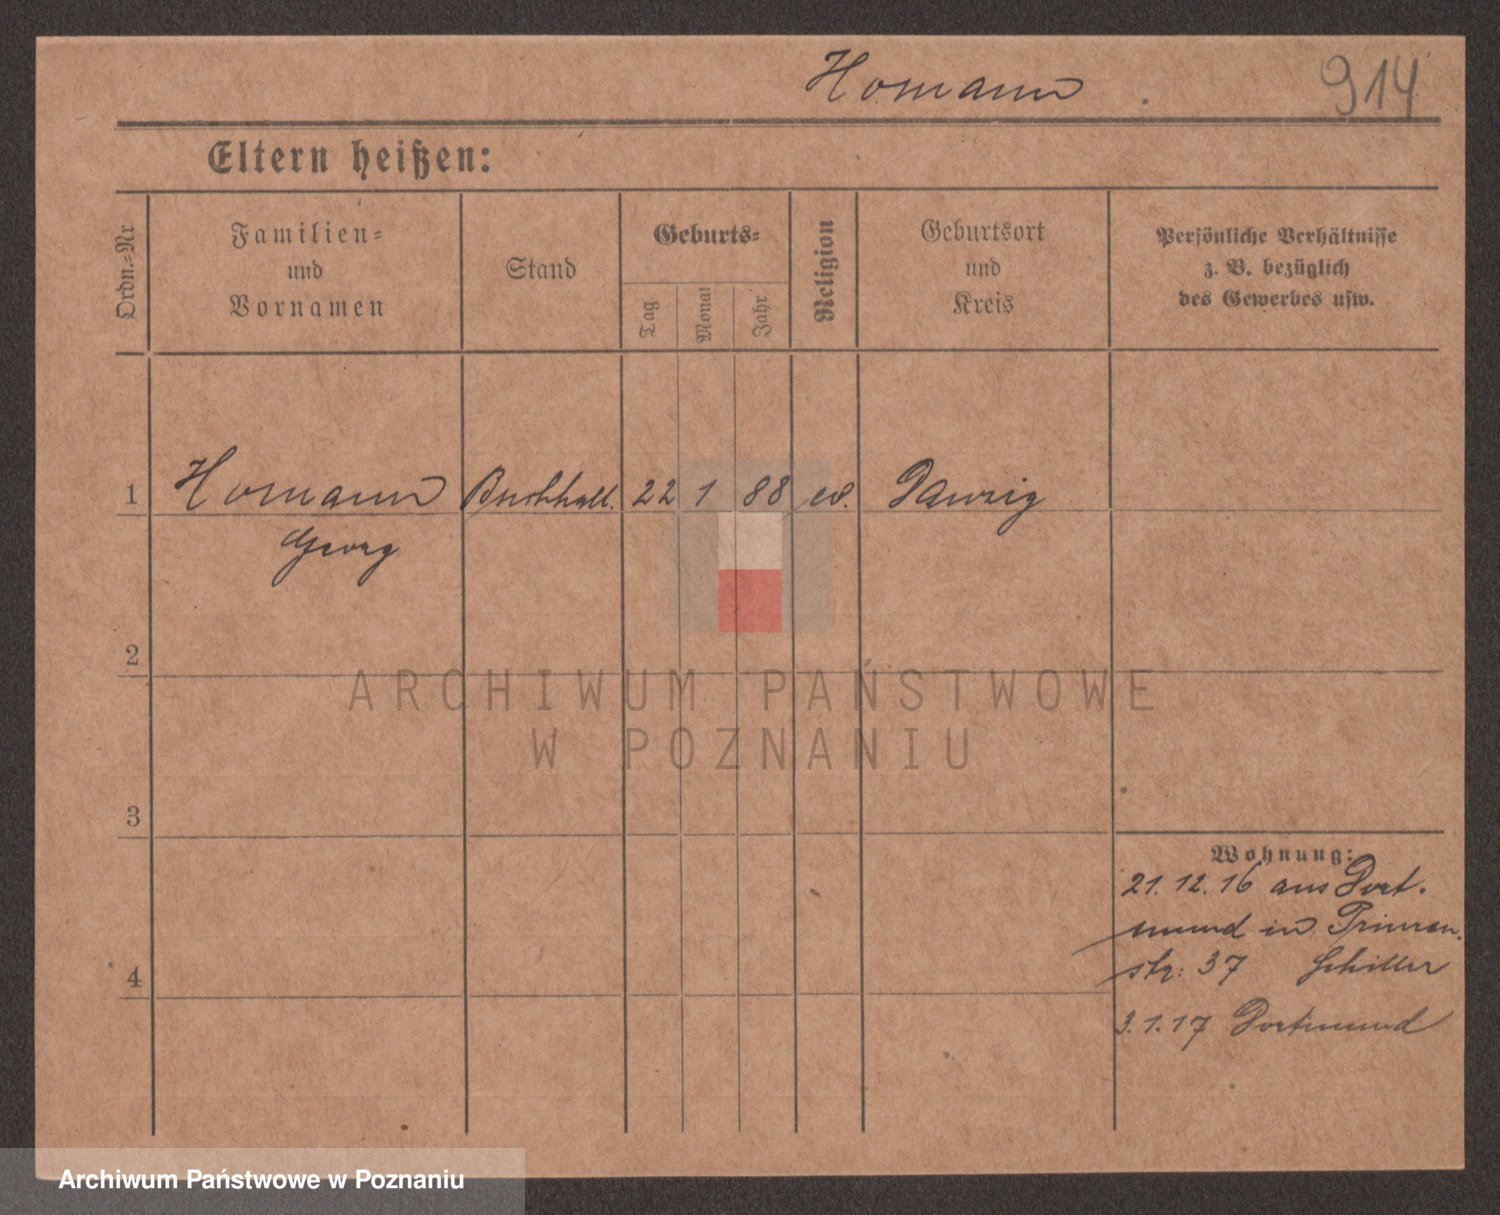 Homann 914
Eltern heißen:
Ordn.=Nr
Familien=
und
Vornamen
Stand
Geburts=
Tag
Monat
Jahr
Religion
Geburtsort
und
Kreis
Persönliche Verhältnisse
z. B. bezüglich
des Gewerbes usw.
1 Homann Buchhalt. 22 1 88 ev. Danzig
Georg
2
ARCHIWUM PAŃSTWOWE
W POZNANIU
3
Wohnung:
21. 12. 16 aus Dort-
mund in Prinzen-
str: 37 Schiller
4
3. 1. 17 Dortmund
Archiwum Państwowe w Poznaniu